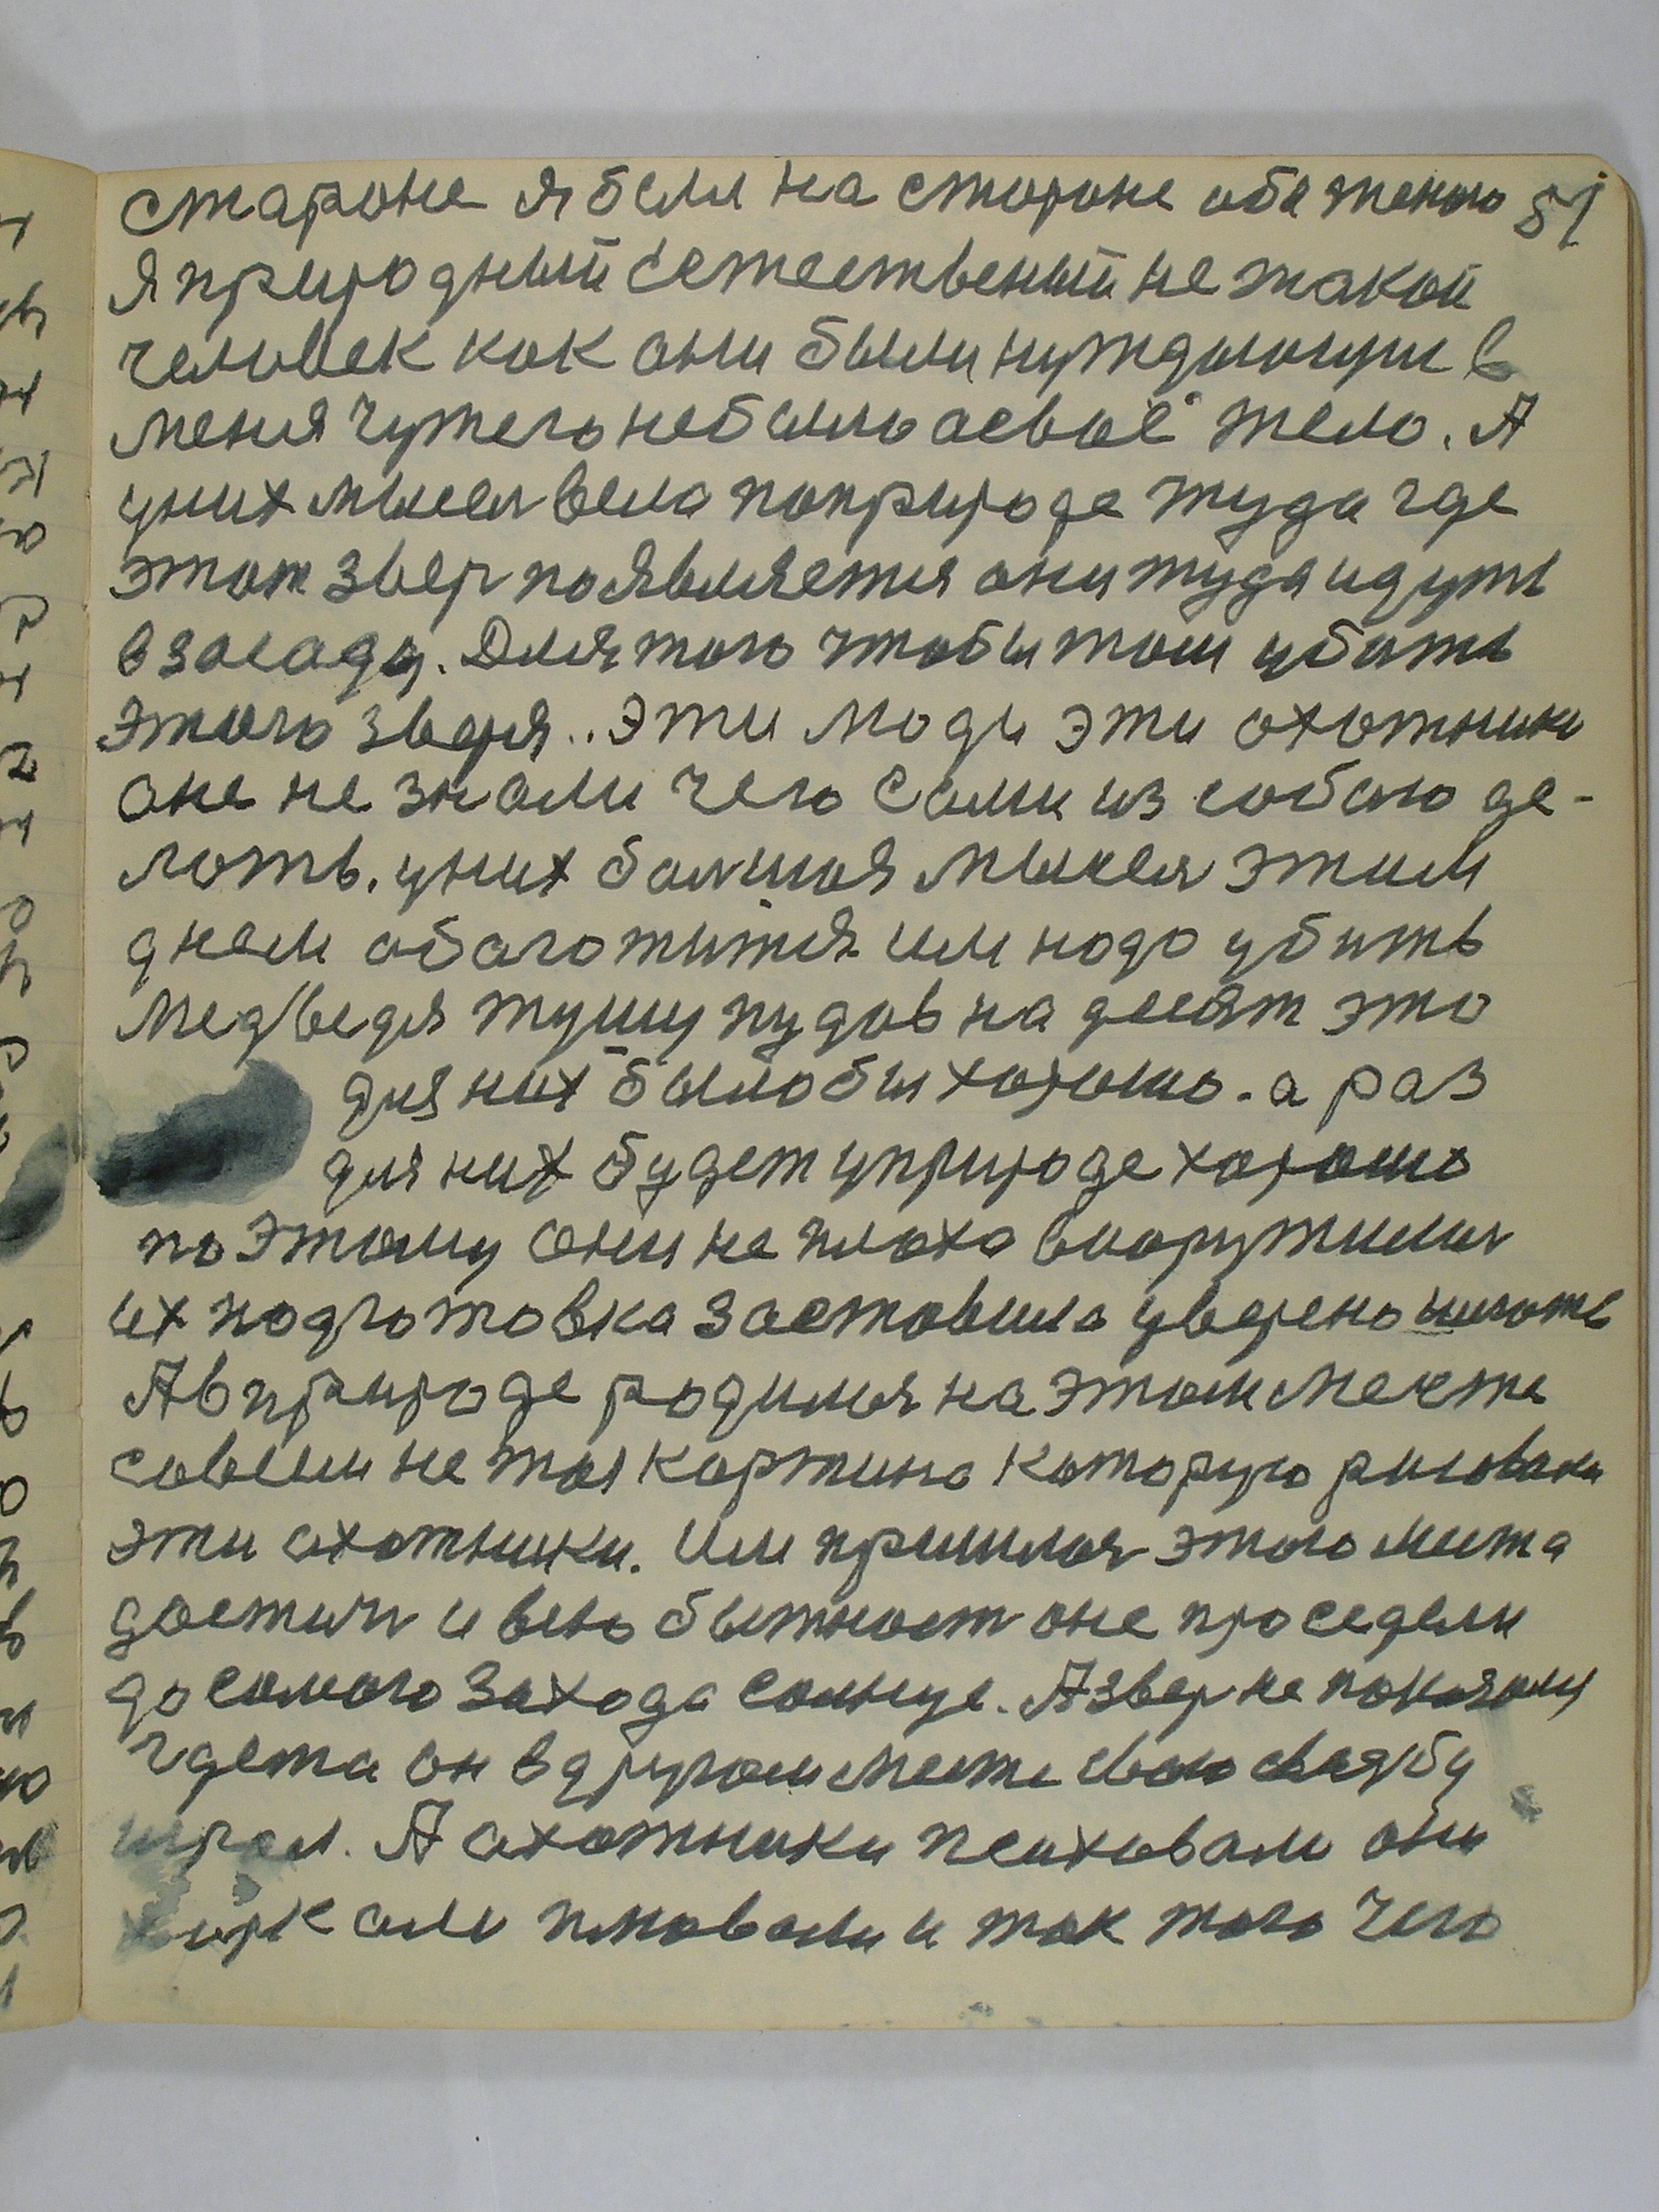 староне я был на стороне обиженого 51
я природный естественый не такой
человек как они были нуждающии в
меня чужего небыло а свое тело. А
уних мысля вела поприроде туда где
этот звер появляется они туда идуть
в засаду. Для того чтобы том убить
этого зверя.. эти люди эти охотники
оне не знали чего сами из собою де-
лоть. уних балшая мысля этим
днем обаготится им надо убить
медведя тушу пудов на десят это
для них было бы хорошо. а раз
для них будет уприроде хорошо
по этому они не плохо вооружилис
их подготовка заставила уверено
А в природе родился на этом месте
совсем не тая картина которую рисовали
эти охотники. Им пришлося этого места
достич и всю бытност оне проседели
до самого захода солнце. А звер не показался
гдета он вдругом месте свою свадбу
играл. А охотники психовали они
хиркали плювали и так того чего